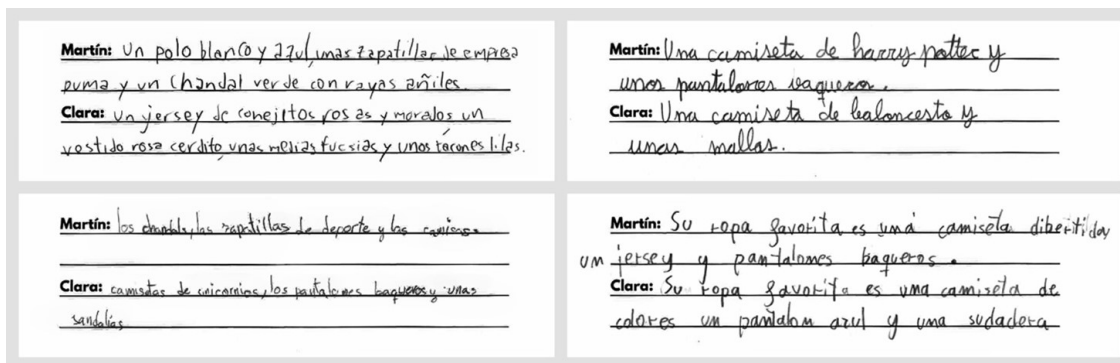 Martín: Un polo blanco y azul, unas zapatillas de empresa
puma y un chandal verde con rayas añiles.
Clara: Un jersey de conejitos rosas y moralos un
vostido rosa cerdito, unas medias fucsias y unos tacones lilas.
Martín: Una camiseta de harry potter y
unos pantalones vaqueros.
Clara: Una camiseta de baloncesto y
unas mallas.
Martín: los chandals, las zapatillas de deporte y las camisas.
Clara: camisetas de unicornios, los pantalones baqueros y unas
sandalias
Martín: Su ropa favorita es una camiseta dibertida y
un jersey y pantalones baqueros.
Clara: Su ropa favorita es una camiseta de
colores un pantalon azul y una sudadera